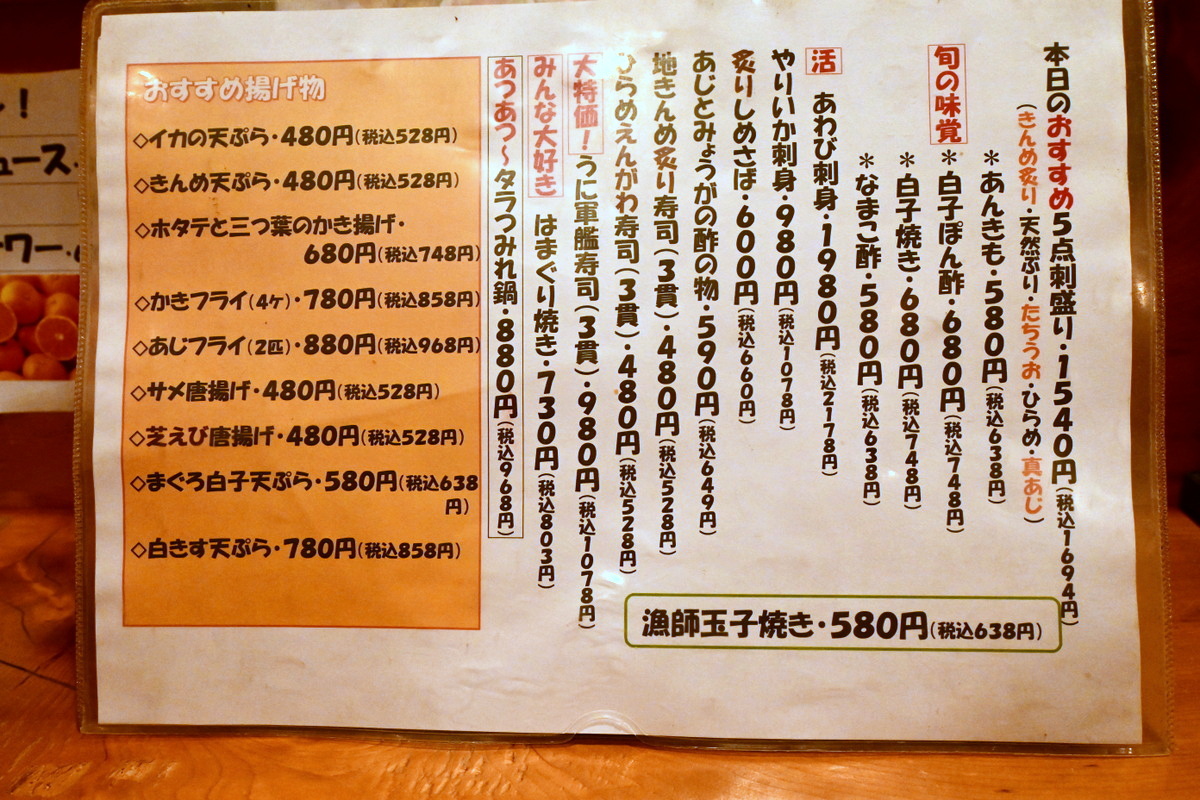 本日のおすすめ5点刺盛り・1540円(税込1694円)
(きんめ炙り・天然ぶり・たちうお・ひらめ・真あじ)
*あんきも・580円(税込638円)
旬の味覚 *白子ぽん酢・680円(税込748円)
*白子焼き・680円(税込748円)
*なまこ酢・580円(税込638円)
活 あわび刺身・1980円(税込2178円)
やりいか刺身・980円(税込1078円)
炙りしめさば・600円(税込660円)
あじとみょうがの酢の物・590円(税込649円)
地きんめ炙り寿司(3貫)・480円(税込528円)
ひらめえんがわ寿司(3貫)・480円(税込528円)
大特価!うに軍艦寿司(3貫)・980円(税込1078円)
みんな大好き はまぐり焼き・730円(税込803円)
あつあつ~タラつみれ鍋・880円(税込968円)
漁師玉子焼き・580円(税込638円)
おすすめ揚げ物
◇イカの天ぷら・480円(税込528円)
◇きんめ天ぷら・480円(税込528円)
◇ホタテと三つ葉のかき揚げ・
680円(税込748円)
◇かきフライ(4ケ)・780円(税込858円)
◇あじフライ(2匹)・880円(税込968円)
◇サメ唐揚げ・480円(税込528円)
◇芝えび唐揚げ・480円(税込528円)
◇まぐろ白子天ぷら・580円(税込638
円)
◇白きす天ぷら・780円(税込858円)
！
ュース・
ワー・